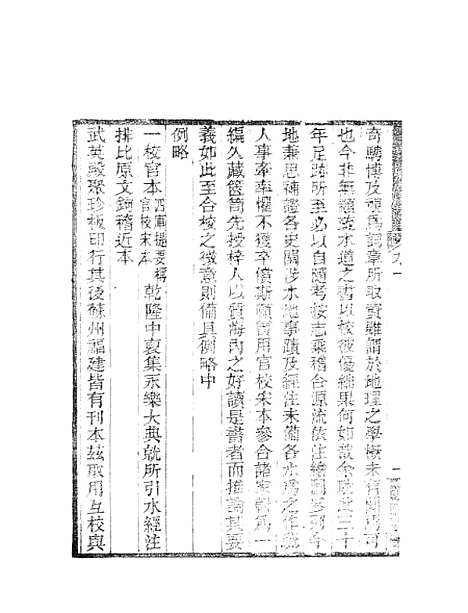 奇騁博及爲詞章所取資雖謂於地理之學概未有聞焉可
也今非無疏水道之書以校彼優絀果何如哉余
年足跡所至必以自隨考按志乘稽合源流依注繪圖
地兼思補證各史關涉水地事蹟及經注未備各水爲之作疏
人事牽率懼不獲卒償斯願輒用官校宋本參合諸家輯爲一
編久藏篋笥先授梓人以質海內之好讀是書者而推論其要
義如此至合校之微意則備具例略中
例略
一校官本四庫提要稱官校宋本乾隆中裒集永樂大典就所引水經注
排比原文鉤稽近本
武英殿聚珍板印行其後蘇州福建皆有刊本茲取用互校與